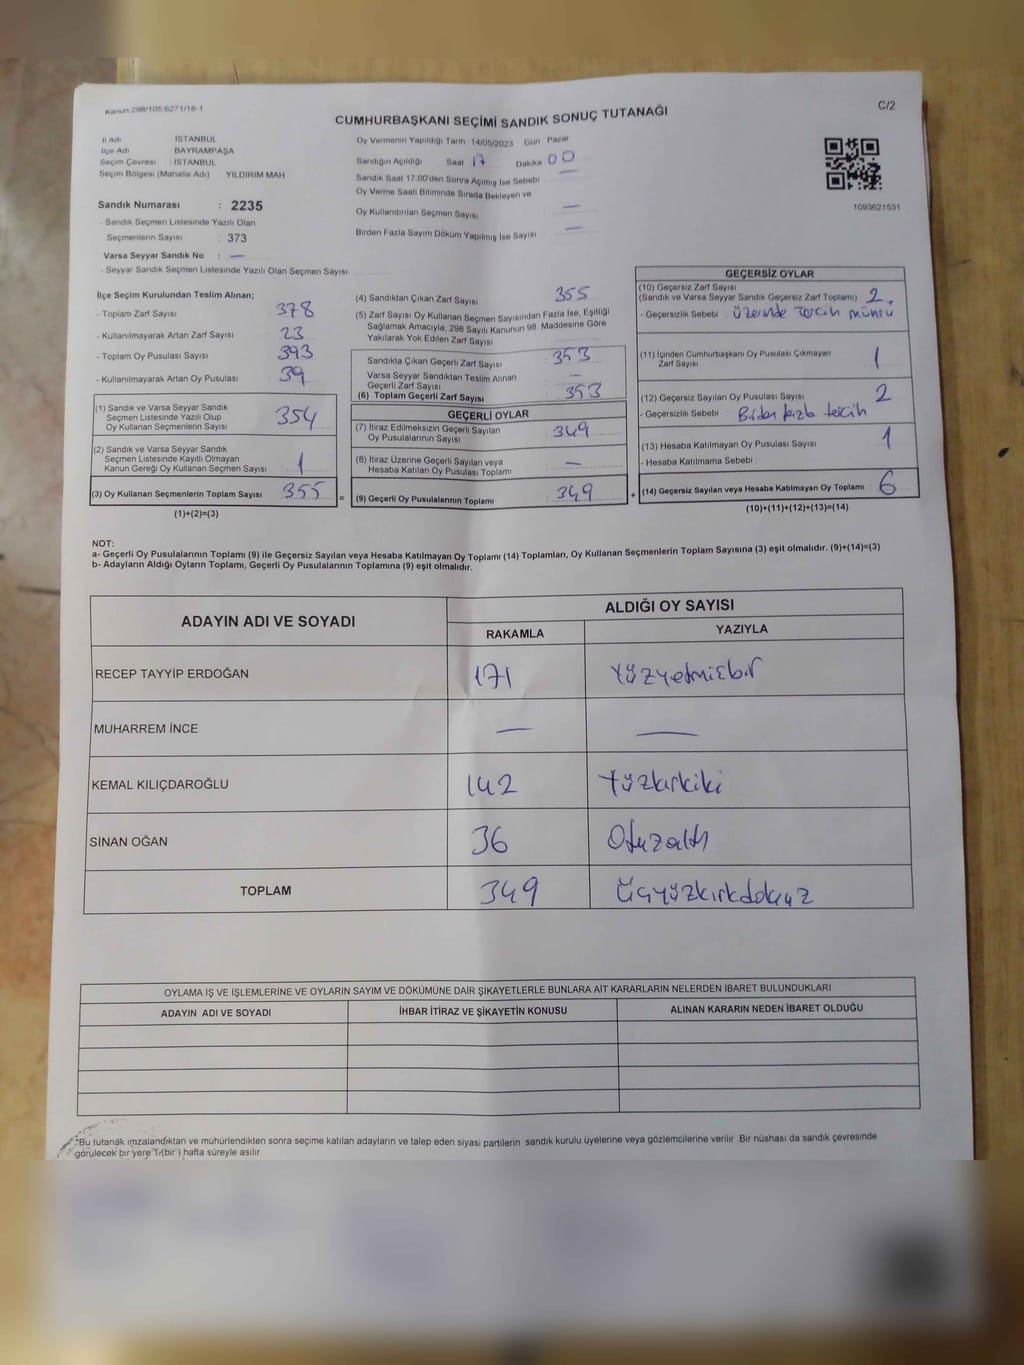 Kanun 298/105,6271/18-1
C/2
CUMHURBAŞKANI SEÇİMİ SANDIK SONUÇ TUTANAĞI
İl Adı : İSTANBUL
İlçe Adı : BAYRAMPAŞA
Seçim Çevresi : İSTANBUL
Seçim Bölgesi (Mahalle Adı) YILDIRIM MAH
Sandık Numarası : 2235
- Sandık Seçmen Listesinde Yazılı Olan
Seçmenlerin Sayısı : 373
Varsa Seyyar Sandık No : —
- Seyyar Sandık Seçmen Listesinde Yazılı Olan Seçmen Sayısı
Oy Vermenin Yapıldığı Tarih 14/05/2023 Gün Pazar
Sandığın Açıldığı Saat 17 Dakika 00
Sandık Saat 17.00'den Sonra Açımış İse Sebebi —
Oy Verme Saati Bitiminde Sırada Bekleyen ve
Oy Kullandırılan Seçmen Sayısı —
Birden Fazla Sayım Döküm Yapılmış İse Sayısı —
1093621531
İlçe Seçim Kurulundan Teslim Alınan;
- Toplam Zarf Sayısı : 378
- Kullanılmayarak Artan Zarf Sayısı : 23
- Toplam Oy Pusulası Sayısı : 393
- Kullanılmayarak Artan Oy Pusulası : 39
(1) Sandık ve Varsa Seyyar Sandık
Seçmen Listesinde Yazılı Olup
Oy Kullanan Seçmenlerin Sayısı : 354
(2) Sandık ve Varsa Seyyar Sandık
Seçmen Listesinde Kayıtlı Olmayan
Kanun Gereği Oy Kullanan Seçmen Sayısı : 1
(3) Oy Kullanan Seçmenlerin Toplam Sayısı : 355 =
(1)+(2)=(3)
(4) Sandıktan Çıkan Zarf Sayısı : 355
(5) Zarf Sayısı Oy Kullanan Seçmen Sayısından Fazla İse, Eşitliği
Sağlamak Amacıyla, 298 Sayılı Kanunun 98. Maddesine Göre
Yakılarak Yok Edilen Zarf Sayısı :
Sandıkta Çıkan Geçerli Zarf Sayısı : 353
Varsa Seyyar Sandıktan Teslim Alınan
Geçerli Zarf Sayısı : —
(6) Toplam Geçerli Zarf Sayısı : 353
GEÇERLİ OYLAR
(7) İtiraz Edilmeksizin Geçerli Sayılan
Oy Pusulalarının Sayısı : 349
(8) İtiraz Üzerine Geçerli Sayılan veya
Hesaba Katılan Oy Pusulası Toplamı : —
(9) Geçerli Oy Pusulalarının Toplamı : 349 +
GEÇERSİZ OYLAR
(10) Geçersiz Zarf Sayısı
(Sandık ve Varsa Seyyar Sandık Geçersiz Zarf Toplamı) : 2
- Geçersizlik Sebebi : üzerinde tercih mührü
(11) İçinden Cumhurbaşkanı Oy Pusulası Çıkmayan
Zarf Sayısı : 1
(12) Geçersiz Sayılan Oy Pusulası Sayısı : 2
- Geçersizlik Sebebi : Birden fazla tercih
(13) Hesaba Katılmayan Oy Pusulası Sayısı : 1
- Hesaba Katılmama Sebebi :
(14) Geçersiz Sayılan veya Hesaba Katılmayan Oy Toplamı : 6
(10)+(11)+(12)+(13)=(14)
NOT:
a- Geçerli Oy Pusulalarının Toplamı (9) ile Geçersiz Sayılan veya Hesaba Katılmayan Oy Toplamı (14) Toplamları, Oy Kullanan Seçmenlerin Toplam Sayısına (3) eşit olmalıdır. (9)+(14)=(3)
b- Adayların Aldığı Oyların Toplamı, Geçerli Oy Pusulalarının Toplamına (9) eşit olmalıdır.
ADAYIN ADI VE SOYADI
ALDIĞI OY SAYISI
RAKAMLA YAZIYLA
RECEP TAYYİP ERDOĞAN 171 Yüzyetmişbir
MUHARREM İNCE — —
KEMAL KILIÇDAROĞLU 142 Yüzkırkiki
SİNAN OĞAN 36 Otuzaltı
TOPLAM 349 Üçyüzkırkdokuz
OYLAMA İŞ VE İŞLEMLERİNE VE OYLARIN SAYIM VE DÖKÜMÜNE DAİR ŞİKAYETLERLE BUNLARA AİT KARARLARIN NELERDEN İBARET BULUNDUKLARI
ADAYIN ADI VE SOYADI İHBAR İTİRAZ VE ŞİKAYETİN KONUSU ALINAN KARARIN NEDEN İBARET OLDUĞU
*Bu tutanak imzalandıktan ve mühürlendikten sonra seçime katılan adayların ve talep eden siyasi partilerin sandık kurulu üyelerine veya gözlemcilerine verilir. Bir nüshası da sandık çevresinde
görülecek bir yere 1 (bir) hafta süreyle asılır